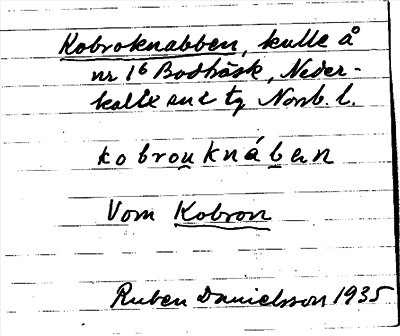 Kobroknabben, kulle å
nr 16 Bodträsk, Neder-
kalix snl ty Norrb. l.
kobrouknáben
Vom Kobron
Ruben Danielsson 1935